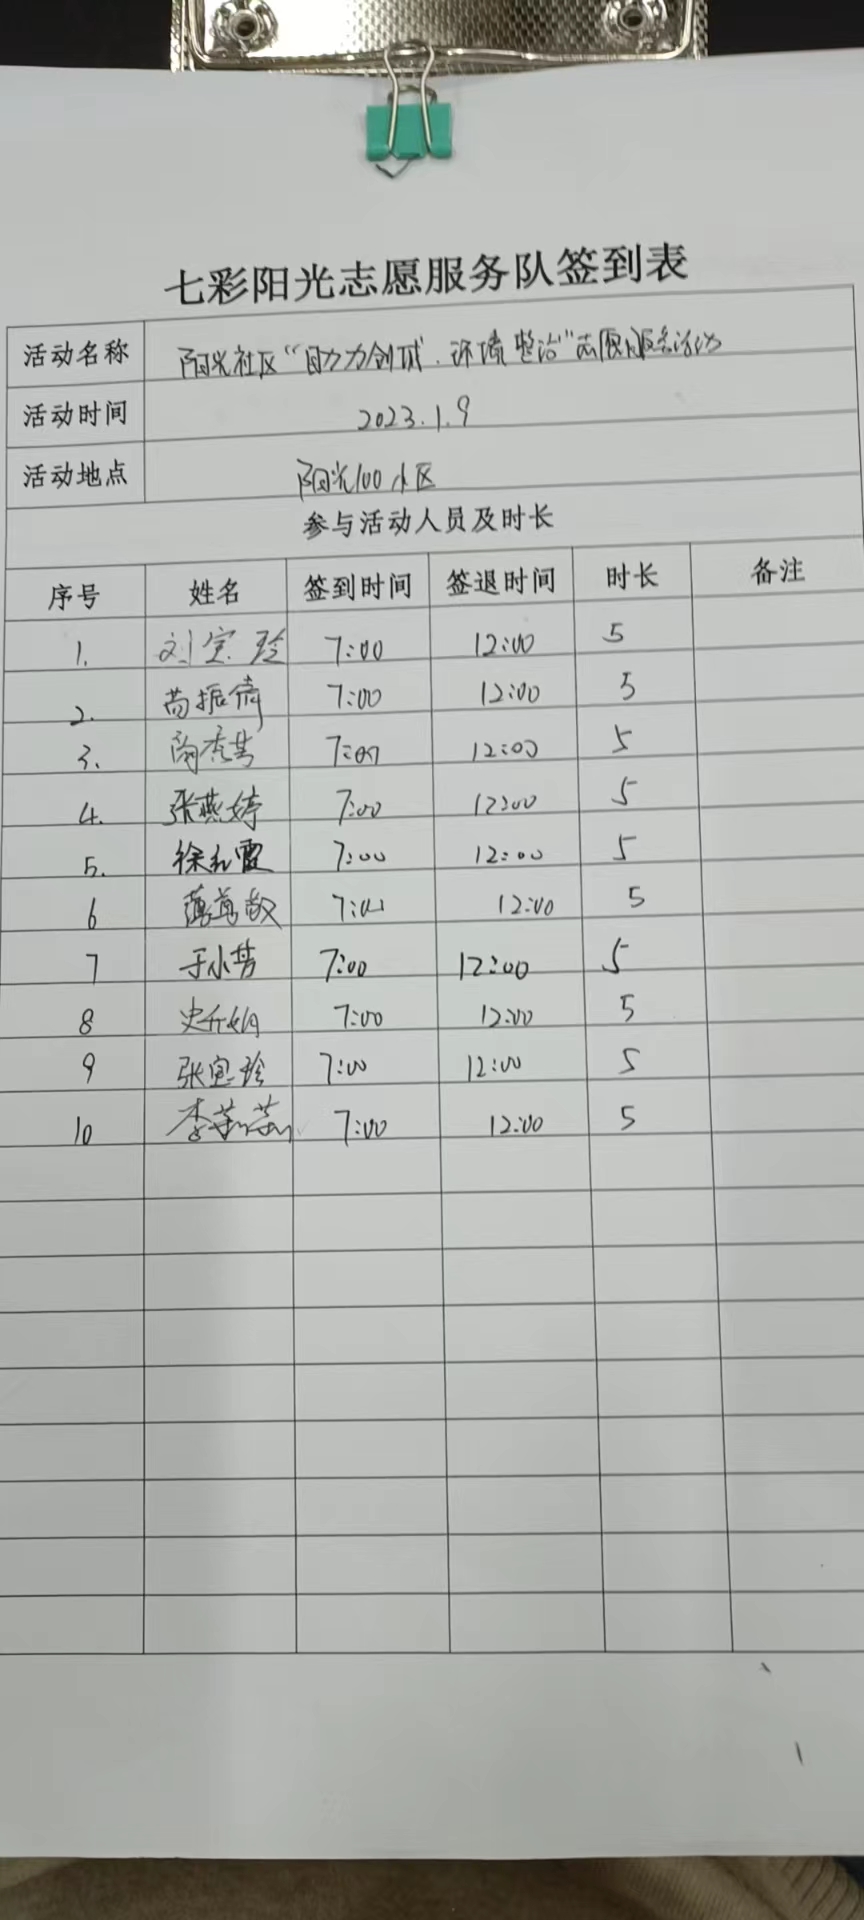 七彩阳光志愿服务队签到表
活动名称 阳光社区“助力创城.环境整治”志愿服务活动
活动时间 2023.1.9
活动地点 阳光100小区
参与活动人员及时长
序号 姓名 签到时间 签退时间 时长 备注
1. 刘宝玲 7:00 12:00 5
2. 苗振倩 7:00 12:00 5
3. 7:00 12:00 5
4. 张燕婷 7:00 12:00 5
5. 徐礼霞 7:00 12:00 5
6 7:00 12:00 5
7 于小芳 7:00 12:00 5
8 史 娟 7:00 12:00 5
9 张宝玲 7:00 12:00 5
10 李 7:00 12:00 5